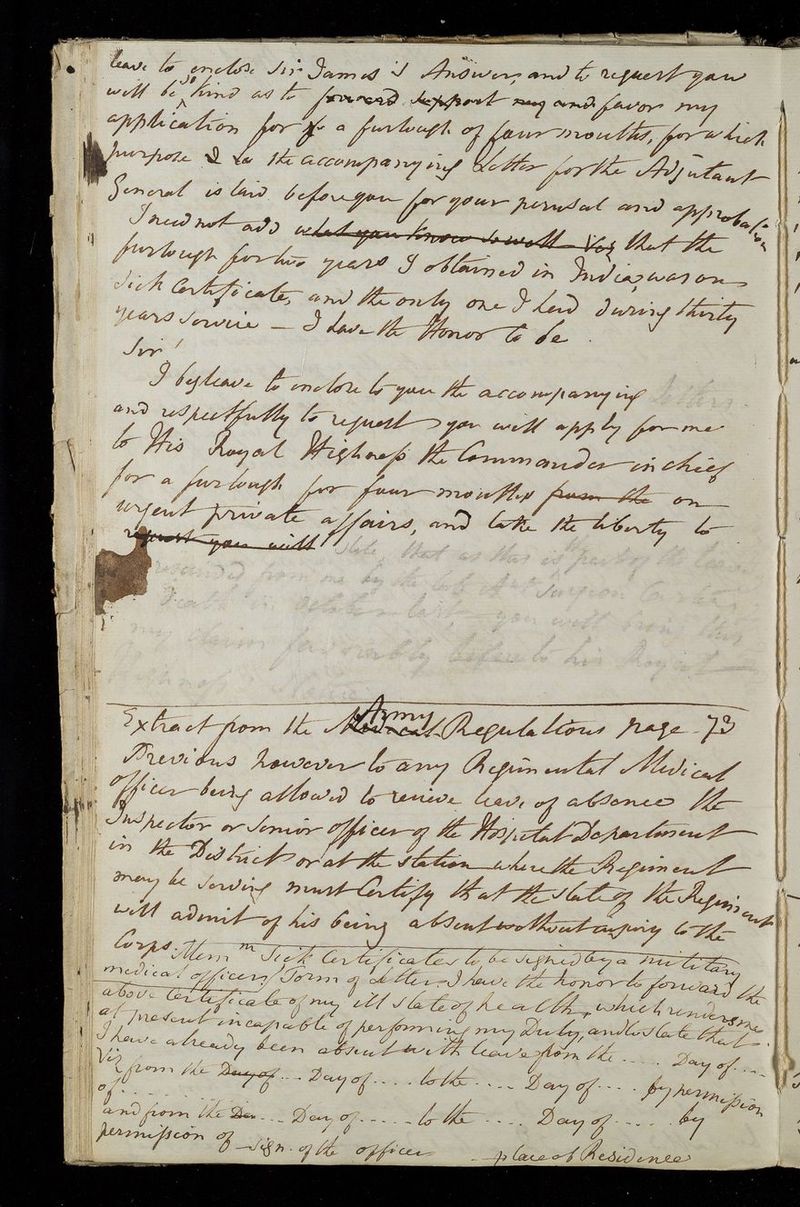 leave to enclose Sir James's Answer, and to request you
will be so kind as to forward support my and favor my
application for a furlough of four months, for which
purpose the accompanying Letter for the Adjutant
General is laid before you for your perusal and approbation
I need not add what you know so well Viz that the
furlough for two years I obtained in India, was on
Sick Certificate, and the only one I had during thirty
years service — I have the Honor to be
Sir!
I beg leave to enclose to you the accompanying letters
and respectfully to request you will apply for me
to His Royal Highness the Commander in chief
for a furlough for four months from the on
urgent private affairs, and take the liberty to
request you will state, that as this is part of the leave
from me by the late Surgeon
Death in October last, you will bring this
my claim favorably before to his Royal
Highness's Notice
Extract from the Medical Army Regulations page 73
Previous however to any Regimental Medical
officer being allowed to receive leave of absence the
Inspector or Senior officer of the Hospital Department
in the District or at the station where the Regiment
may be serving must Certify that the state of the Regiment
will admit of his being absent without injury to the
Corps. Mem.m Sick Certificates to be signed by a military
medical officer / Form of Letter I have the honor to forward the
above Certificate of my ill state of health, which renders me
at present incapable of performing my Duty, and to state that
I have already been absent with leave from the ..... Day of ....
Viz from the Day of ... Day of .... to the .... Day of .... by permission
of
and from the De ... Day of ..... to the .... Day of ..... by
permission of Sign. of the officer place of Residence